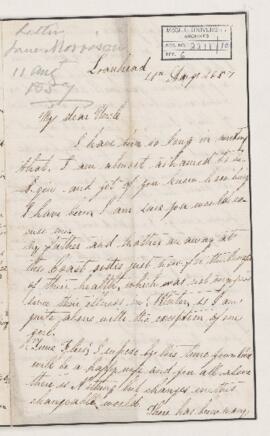 Letter
Jane Morrison
11 Aug
1857
McGILL UNIVERSITY
ARCHIVES
ACC. NO. 2211/10
REF. 6
Loanhead
11th Aug 1857
My dear Uncle
I have been so long in writing
that I am almost ashamed to
you and yet if you knew how busy
I have been I am sure you would
me
My father and mother are away at
the Coast just now for the
of their health, which was not
since their illness in Winter, so I am
quite alone with the exception of
girl.
I suppose by this time
will be a happy wife and you all alone
there is nothing but changes in this
changeable world.
There has been many